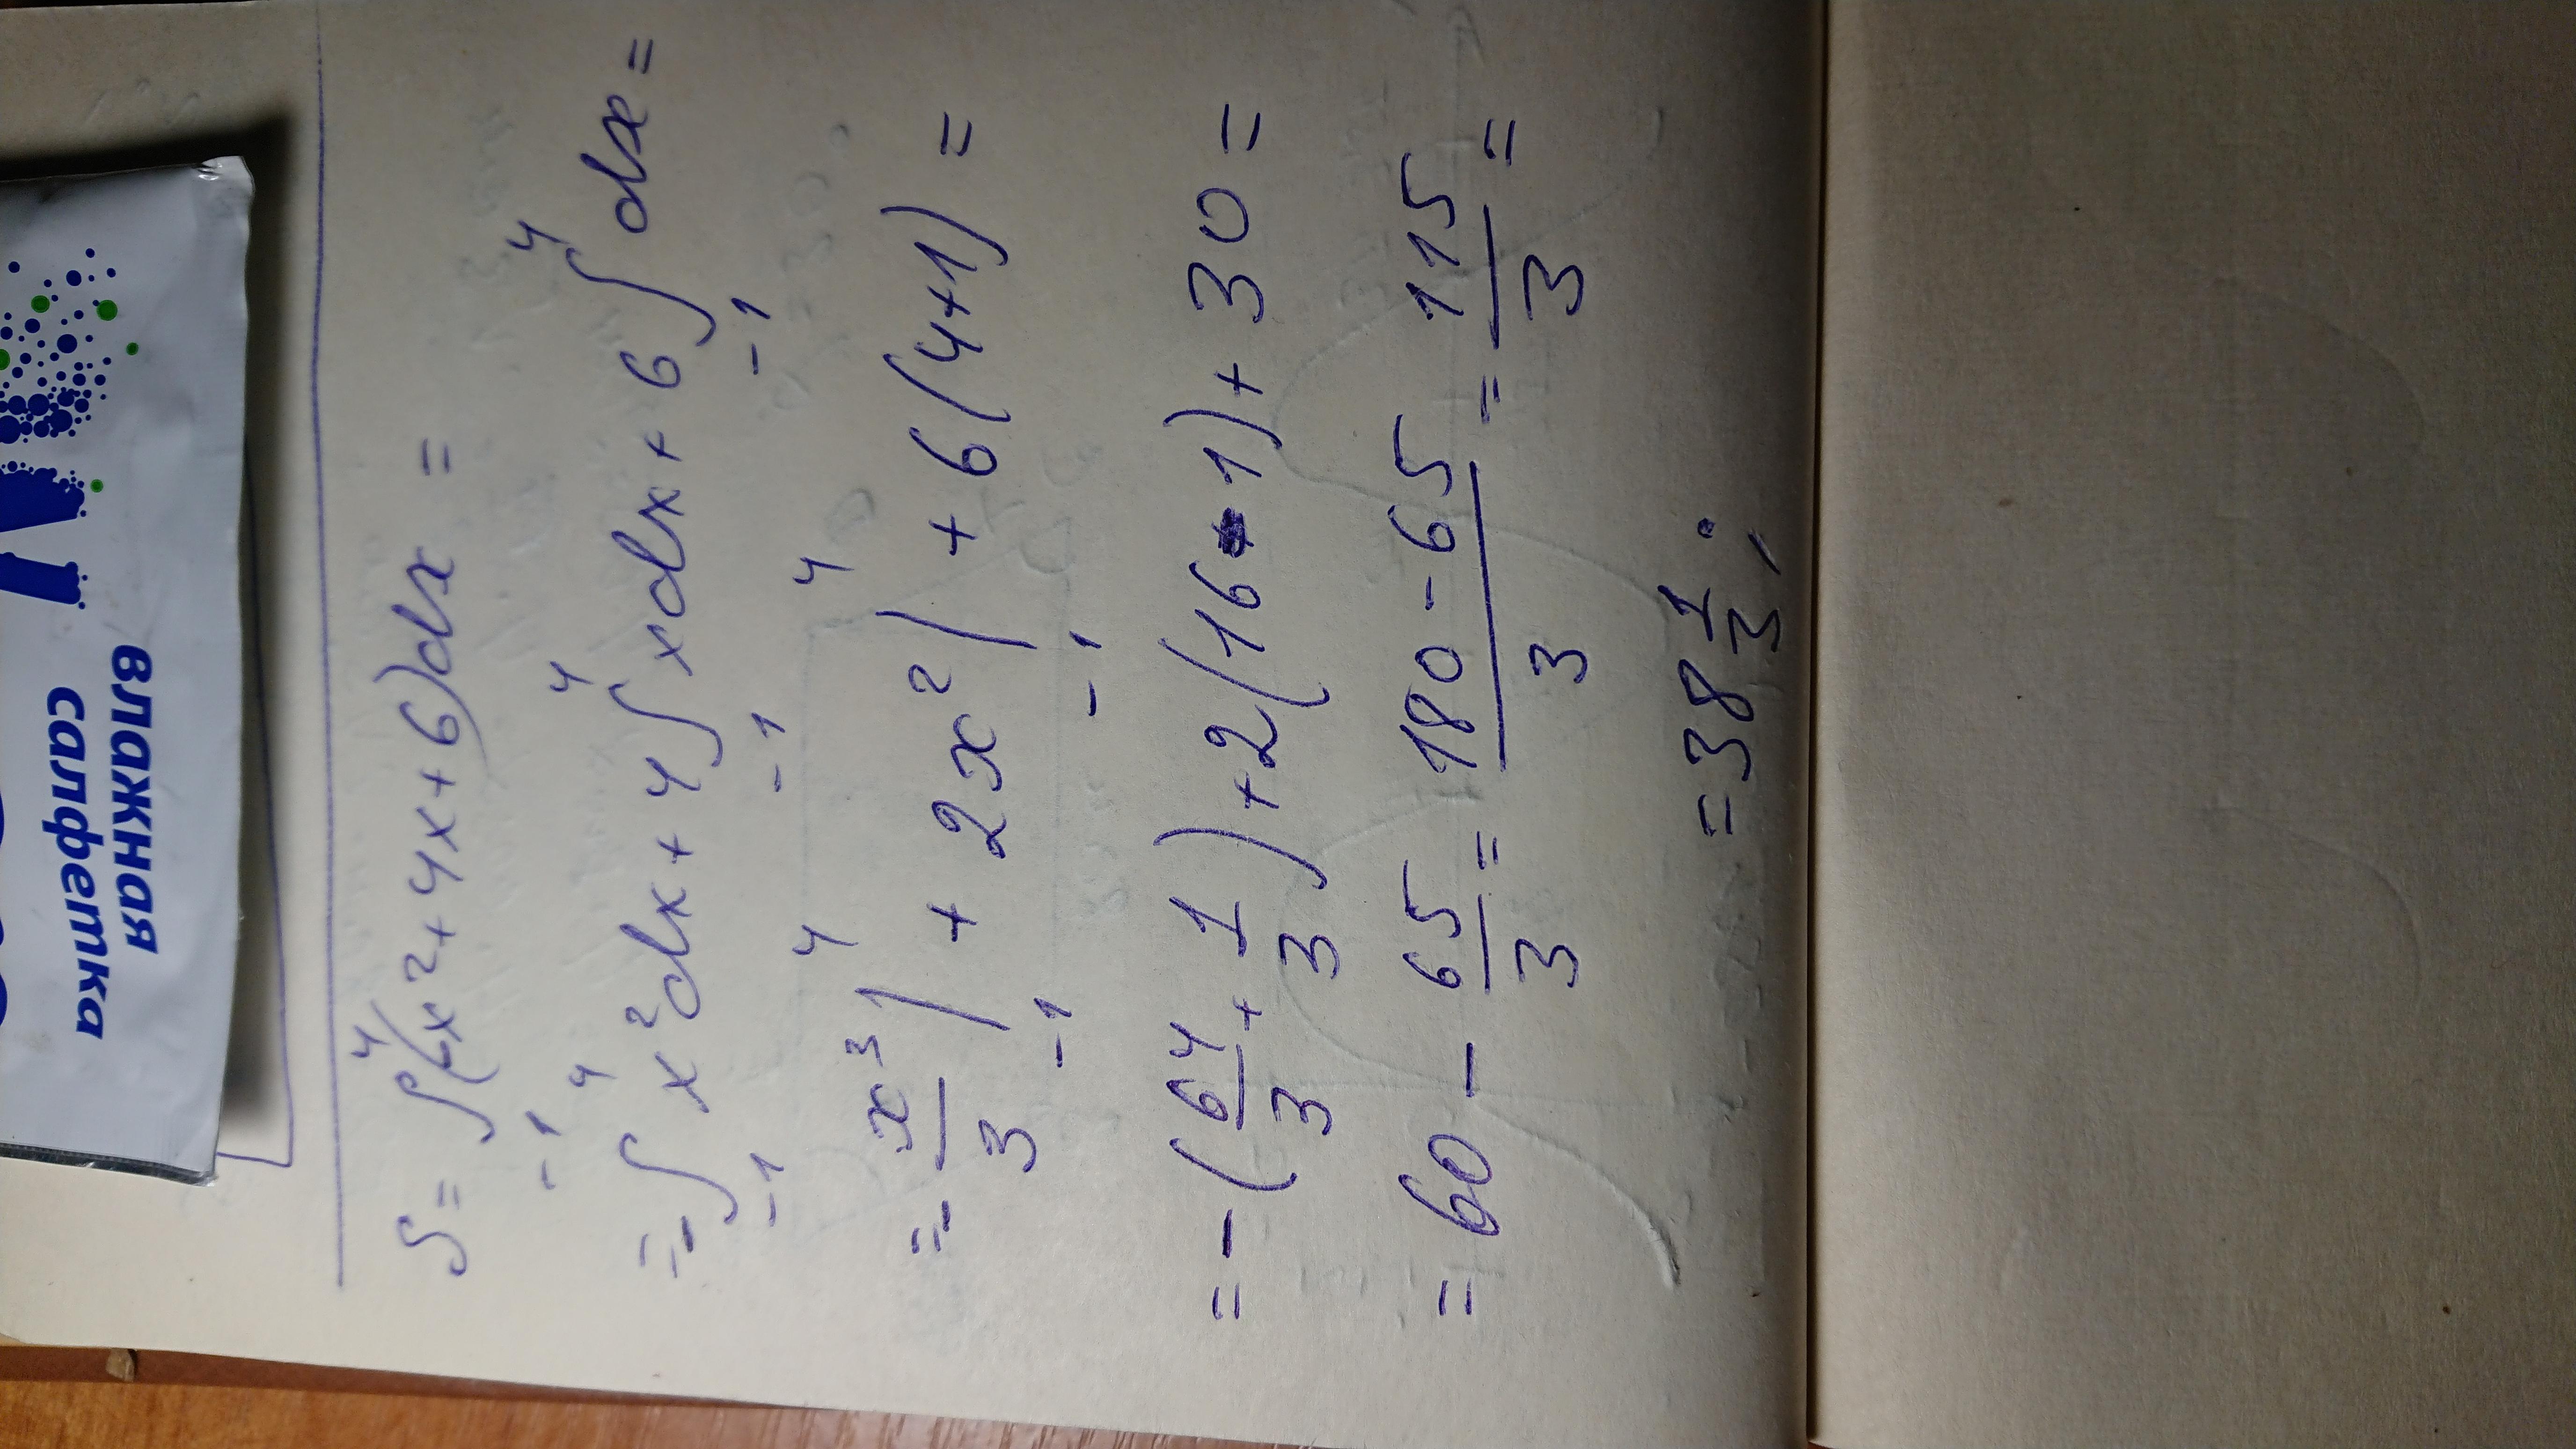 влажная
салфетка
S = ∫₋₁⁴ (-x² + 4x + 6) dx =
= -∫₋₁⁴ x² dx + 4 ∫₋₁⁴ x dx + 6 ∫₋₁⁴ dx =
= -x³/3 |₋₁⁴ + 2x² |₋₁⁴ + 6(4+1) =
= -(64/3 + 1/3) + 2(16-1) + 30 =
= 60 - 65/3 = (180-65)/3 = 115/3 =
= 38 1/3;